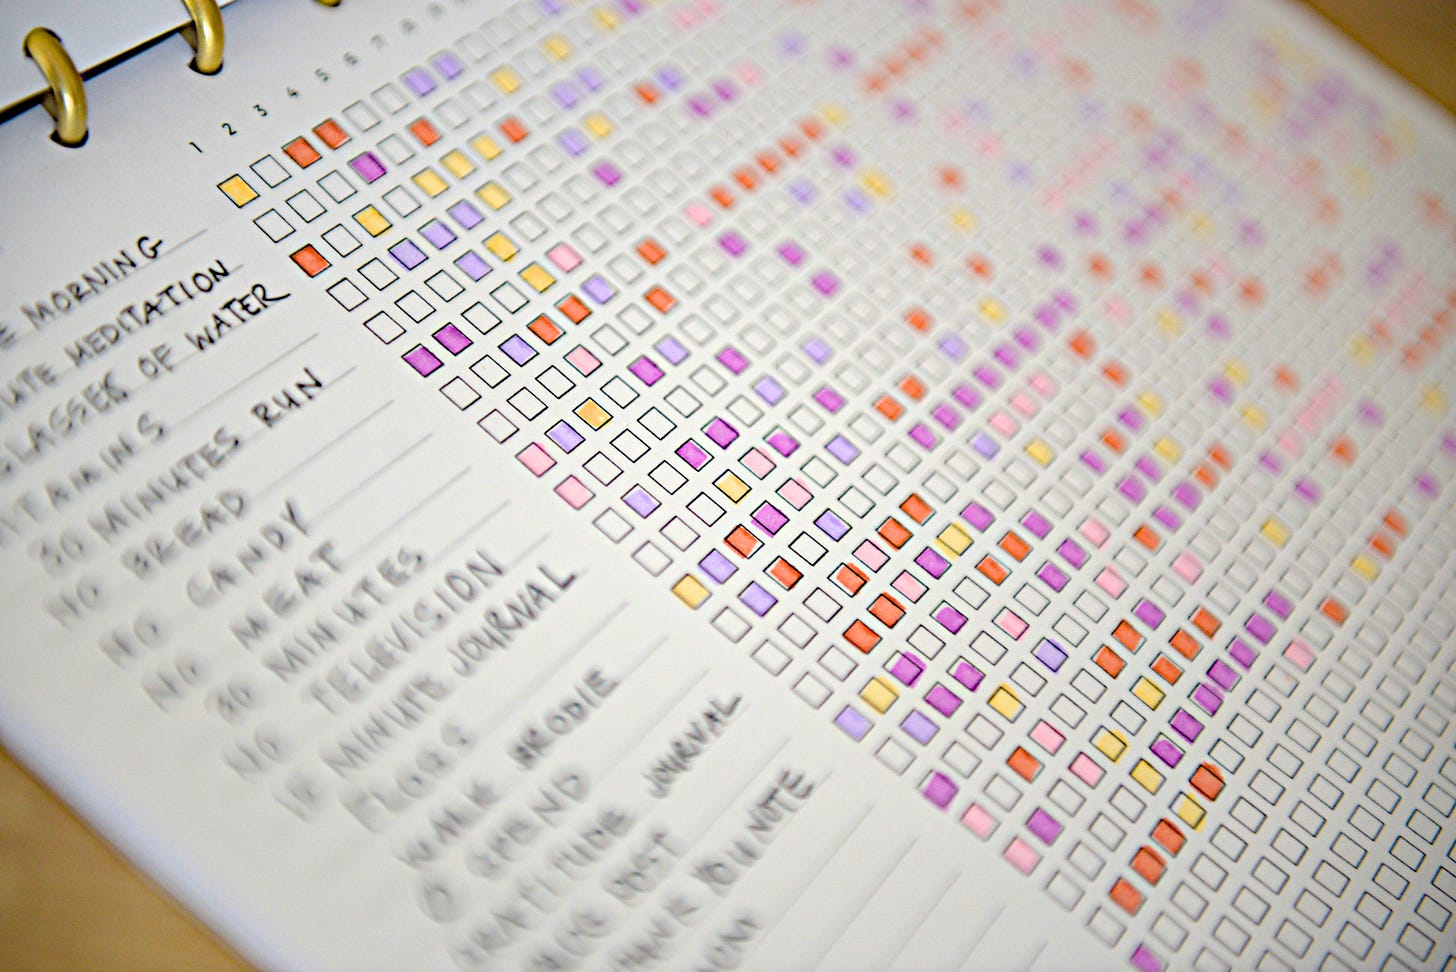 1 2 3 4 5 6 7 8
MORNING
MEDITATION
GLASSES OF WATER
30 MINUTES RUN
NO BREAD
NO CANDY
NO MEAT
MINUTES
NO TELEVISION
MINUTE JOURNAL
FLOSS
WALK BRODIE
SPEND
GRATITUDE JOURNAL
POST
THANK YOU NOTE